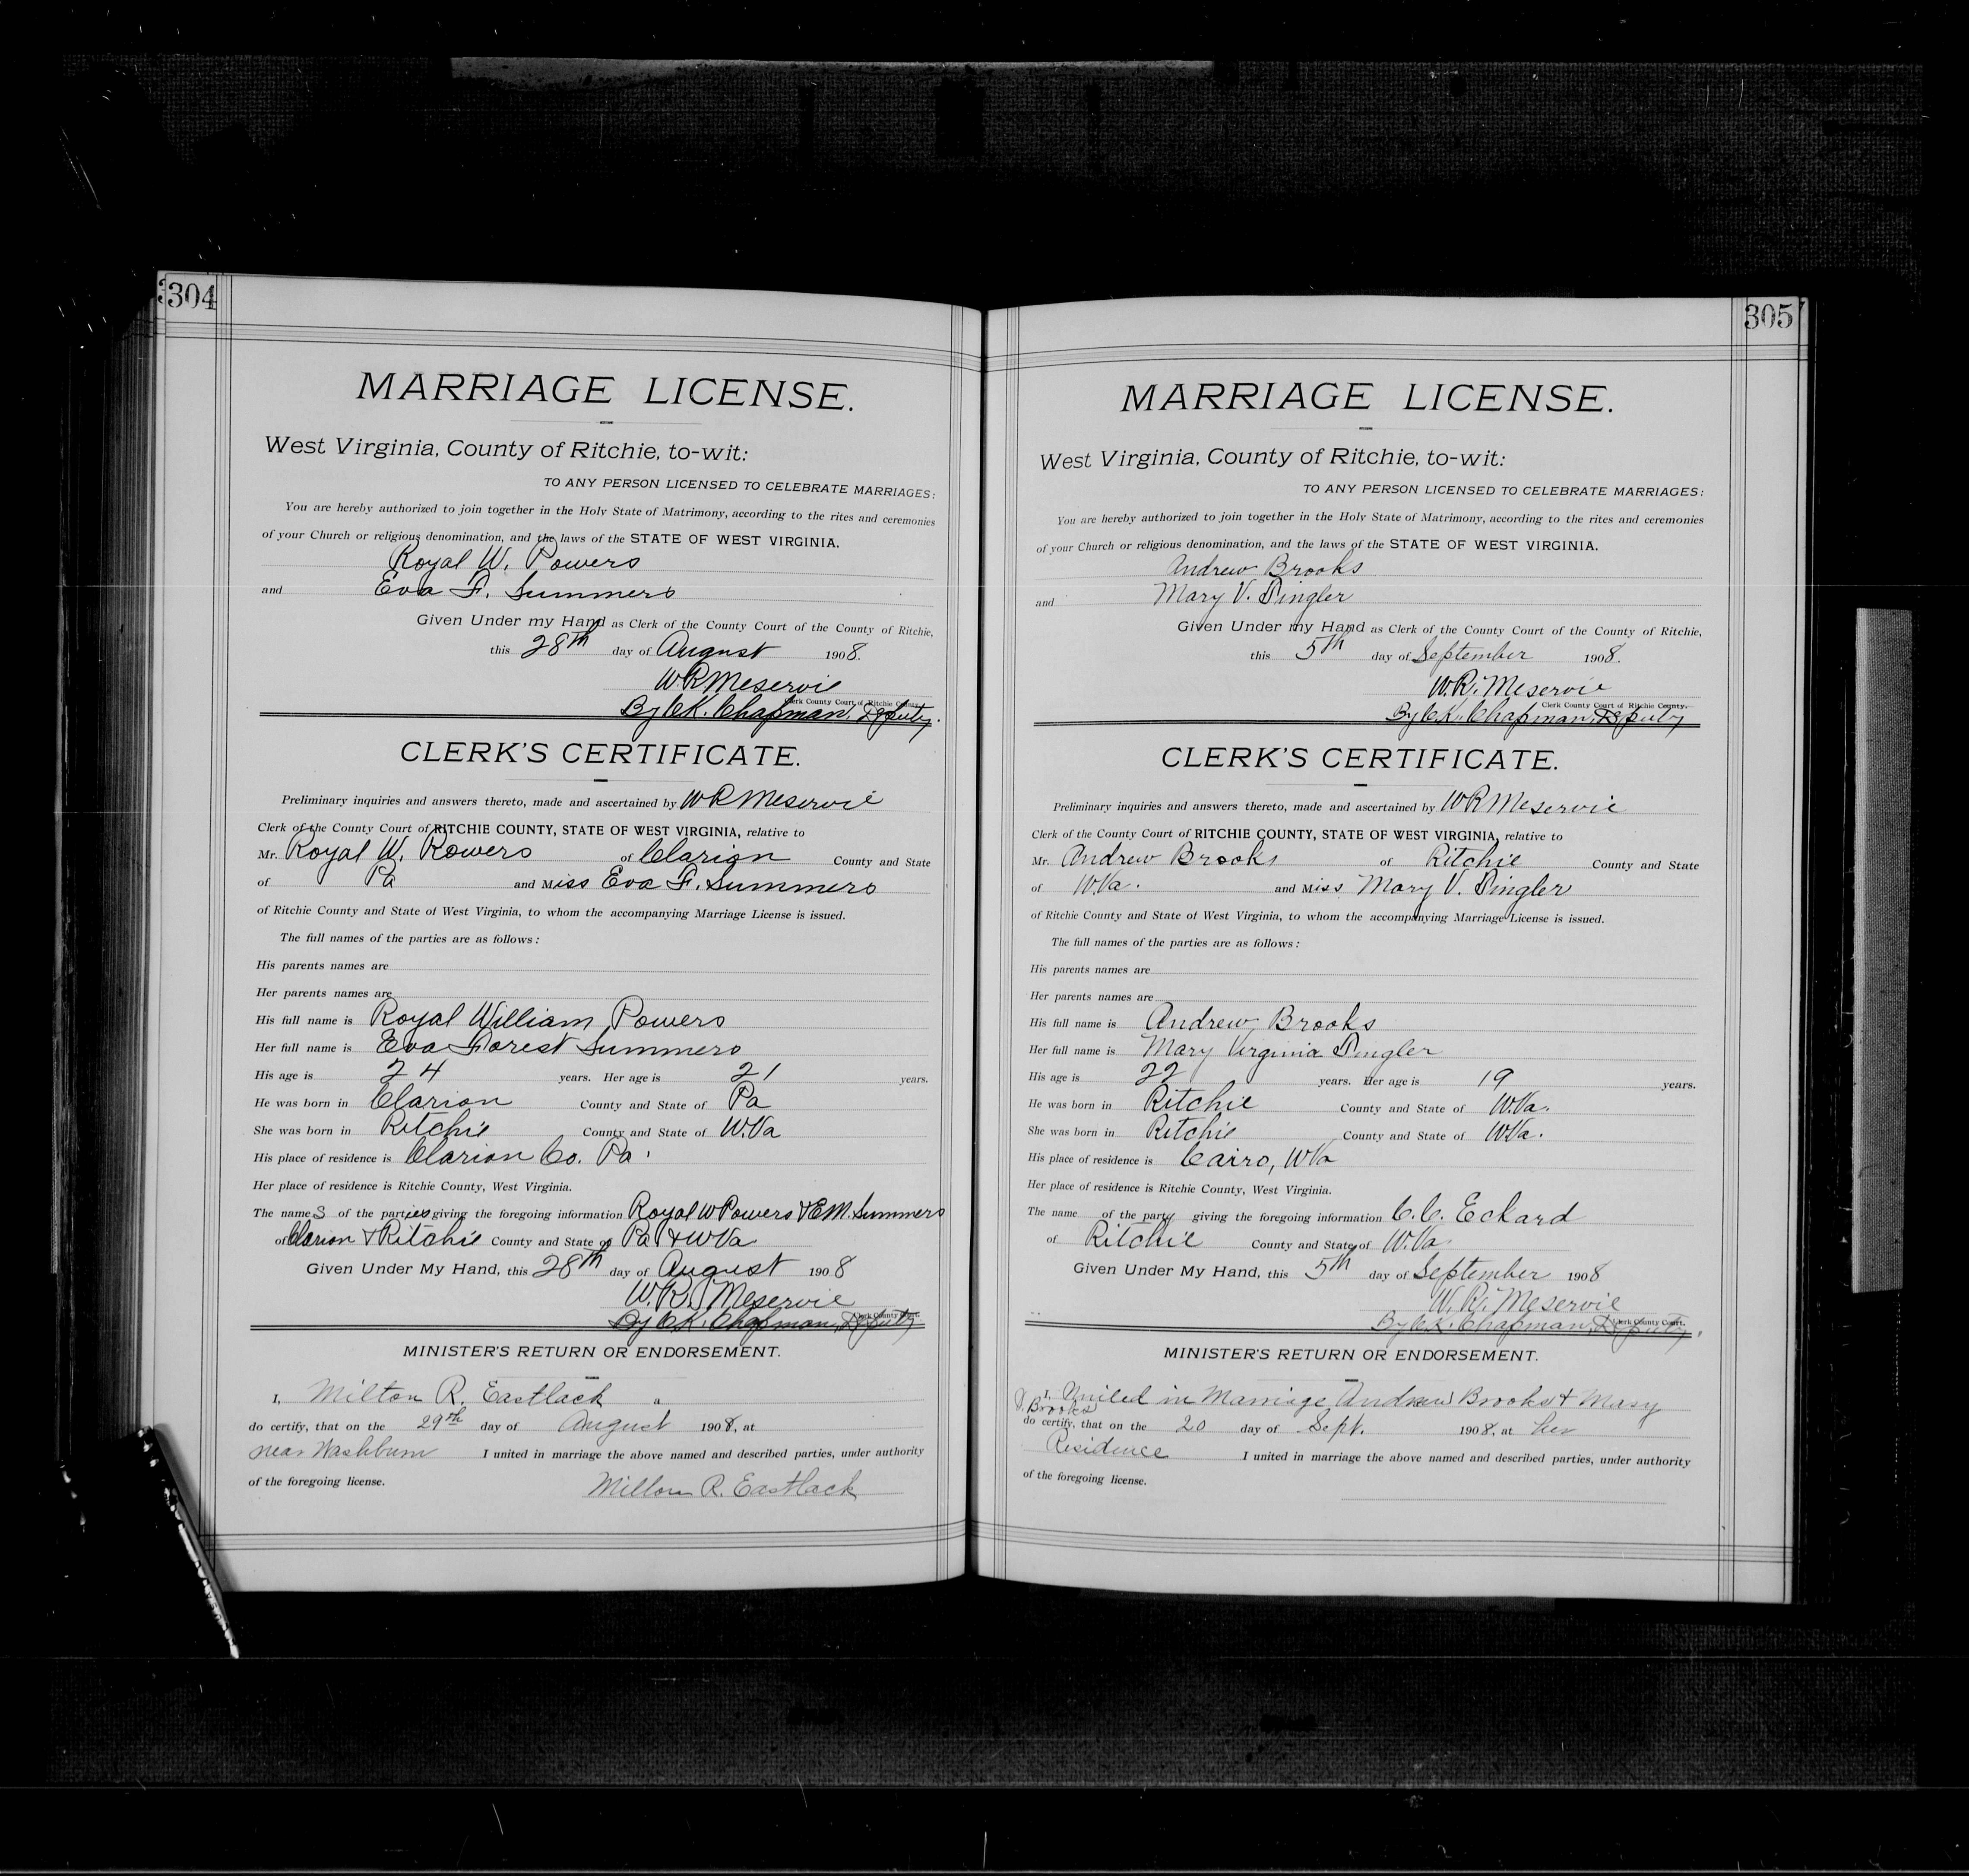 304
MARRIAGE LICENSE.
West Virginia, County of Ritchie, to-wit:
TO ANY PERSON LICENSED TO CELEBRATE MARRIAGES:
You are hereby authorized to join together in the Holy State of Matrimony, according to the rites and ceremonies
of your Church or religious denomination, and the laws of the STATE OF WEST VIRGINIA.
Royal W. Powers
and Eva F. Summers
Given Under my Hand as Clerk of the County Court of the County of Ritchie,
this 28th day of August 1908.
W R Meservie
Clerk County Court of Ritchie County.
By C K. Chapman, Deputy.
CLERK'S CERTIFICATE.
Preliminary inquiries and answers thereto, made and ascertained by W R Meservie
Clerk of the County Court of RITCHIE COUNTY, STATE OF WEST VIRGINIA, relative to
Mr. Royal W. Powers of Clarion County and State
of Pa and Miss Eva F. Summers
of Ritchie County and State of West Virginia, to whom the accompanying Marriage License is issued.
The full names of the parties are as follows:
His parents names are
Her parents names are
His full name is Royal William Powers
Her full name is Eva Forest Summers
His age is 24 years. Her age is 21 years.
He was born in Clarion County and State of Pa
She was born in Ritchie County and State of W.Va
His place of residence is Clarion Co. Pa.
Her place of residence is Ritchie County, West Virginia.
The names of the parties giving the foregoing information Royal W Powers & E M. Summers
of Clarion & Ritchie County and State of Pa & W Va
Given Under My Hand, this 28th day of August 1908
W. R. Meservie
Clerk County Court.
By C K. Chapman, Deputy
MINISTER'S RETURN OR ENDORSEMENT.
I, Milton R. Eastlack a
do certify, that on the 29th day of August 1908, at
near Washburn I united in marriage the above named and described parties, under authority
of the foregoing license. Milton R. Eastlack
305
MARRIAGE LICENSE.
West Virginia, County of Ritchie, to-wit:
TO ANY PERSON LICENSED TO CELEBRATE MARRIAGES:
You are hereby authorized to join together in the Holy State of Matrimony, according to the rites and ceremonies
of your Church or religious denomination, and the laws of the STATE OF WEST VIRGINIA.
Andrew Brooks
and Mary V. Dingler
Given Under my Hand as Clerk of the County Court of the County of Ritchie,
this 5th day of September 1908.
W. R. Meservie
Clerk County Court of Ritchie County.
By C K. Chapman, Deputy
CLERK'S CERTIFICATE.
Preliminary inquiries and answers thereto, made and ascertained by W R Meservie
Clerk of the County Court of RITCHIE COUNTY, STATE OF WEST VIRGINIA, relative to
Mr. Andrew Brooks of Ritchie County and State
of W.Va. and Miss Mary V. Dingler
of Ritchie County and State of West Virginia, to whom the accompanying Marriage License is issued.
The full names of the parties are as follows:
His parents names are
Her parents names are
His full name is Andrew Brooks
Her full name is Mary Virginia Dingler
His age is 22 years. Her age is 19 years.
He was born in Ritchie County and State of W.Va.
She was born in Ritchie County and State of W.Va.
His place of residence is Cairo, W Va
Her place of residence is Ritchie County, West Virginia.
The name of the party giving the foregoing information C. C. Eckard
of Ritchie County and State of W.Va
Given Under My Hand, this 5th day of September 1908
W. R. Meservie
Clerk County Court.
By C.K. Chapman, Deputy.
MINISTER'S RETURN OR ENDORSEMENT.
I, United in Marriage Andrew Brooks & Mary
V. Brooks
do certify, that on the 20 day of Sept. 1908, at her
Residence I united in marriage the above named and described parties, under authority
of the foregoing license.